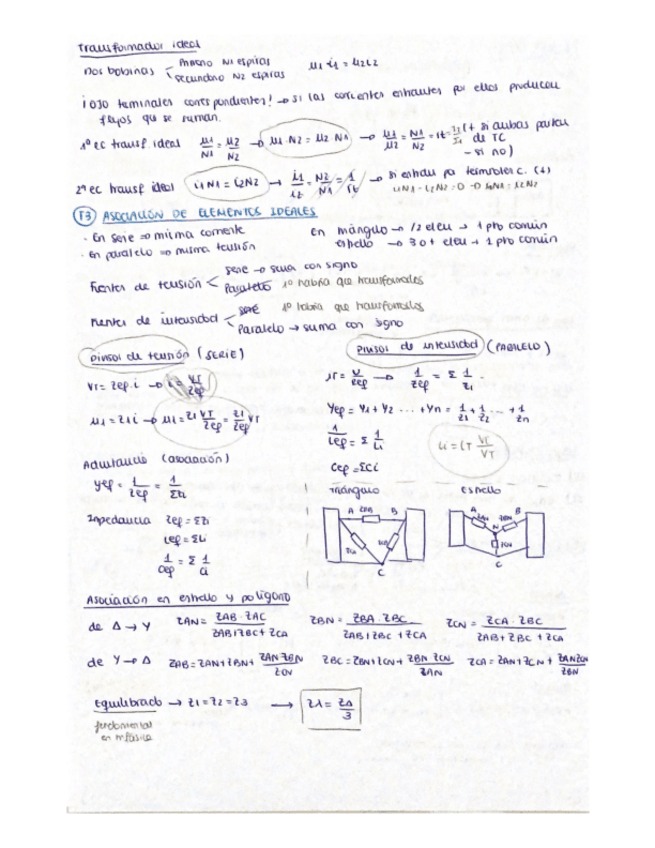 Transformador ideal
Dos bobinas < Primario N1 espiras
secundario N2 espiras
u1 i1 = u2 i2
¡OJO terminales correspondientes! → si las corrientes entrantes por ellos producen
flujos que se suman.
1º ec transf. ideal u1/N1 = u2/N2 → u1·N2 = u2·N1 → u1/u2 = N1/N2 = rt (+ si ambas
de TC
- si no)
2º ec transf ideal i1N1 = i2N2 → i1/i2 = N2/N1 = 1/rt → si por terminales c. (+)
i1N1 - i2N2 = 0 → i1N1 = i2N2
T3 ASOCIACIÓN DE ELEMENTOS IDEALES
· En serie ⇒ misma corriente
· En paralelo ⇒ misma tensión
en triángulo → /2 elem → 1 pto común
estrella → 3 o + elem + 1 pto común
Fuentes de tensión < serie → suma con signo
Paralelo 1º habría que transformarlos
Fuentes de intensidad < serie 1º habría que transformarlos
Paralelo → suma con signo
Divisor de tensión (SERIE)
VT = Zep·i → i = VT/Zep
u1 = Z1 i → u1 = Z1 VT/Zep = Z1/Zep VT
Divisor de intensidad (PARALELO)
1/Zep = Σ 1/Zi
Yep = Y1 + Y2 ... + Yn = 1/Z1 + 1/Z2 ... + 1/Zn
1/Lep = Σ 1/Li
Cep = ΣCi
Admitancia (asociación)
Yep = 1/Zep = 1/ΣZi
Impedancia Zep = ΣZi
Lep = ΣLi
1/Cep = Σ 1/Ci
triángulo
estrella
A ZAB B
ZCA
C
A B
ZAN ZBN
N
ZCN
C
Asociación en estrella y polígono
de Δ → Y ZAN = ZAB·ZAC / ZAB+ZBC+ZCA ZBN = ZBA·ZBC / ZAB+ZBC+ZCA ZCN = ZCA·ZBC / ZAB+ZBC+ZCA
de Y → Δ ZAB = ZAN+ZBN+ ZAN·ZBN / ZCN ZBC = ZBN+ZCN+ ZBN·ZCN / ZAN ZCA = ZAN+ZCN+ ZANZCN / ZBN
Equilibrado → Z1 = Z2 = Z3 → Zλ = ZΔ/3
fundamental
en trifásica